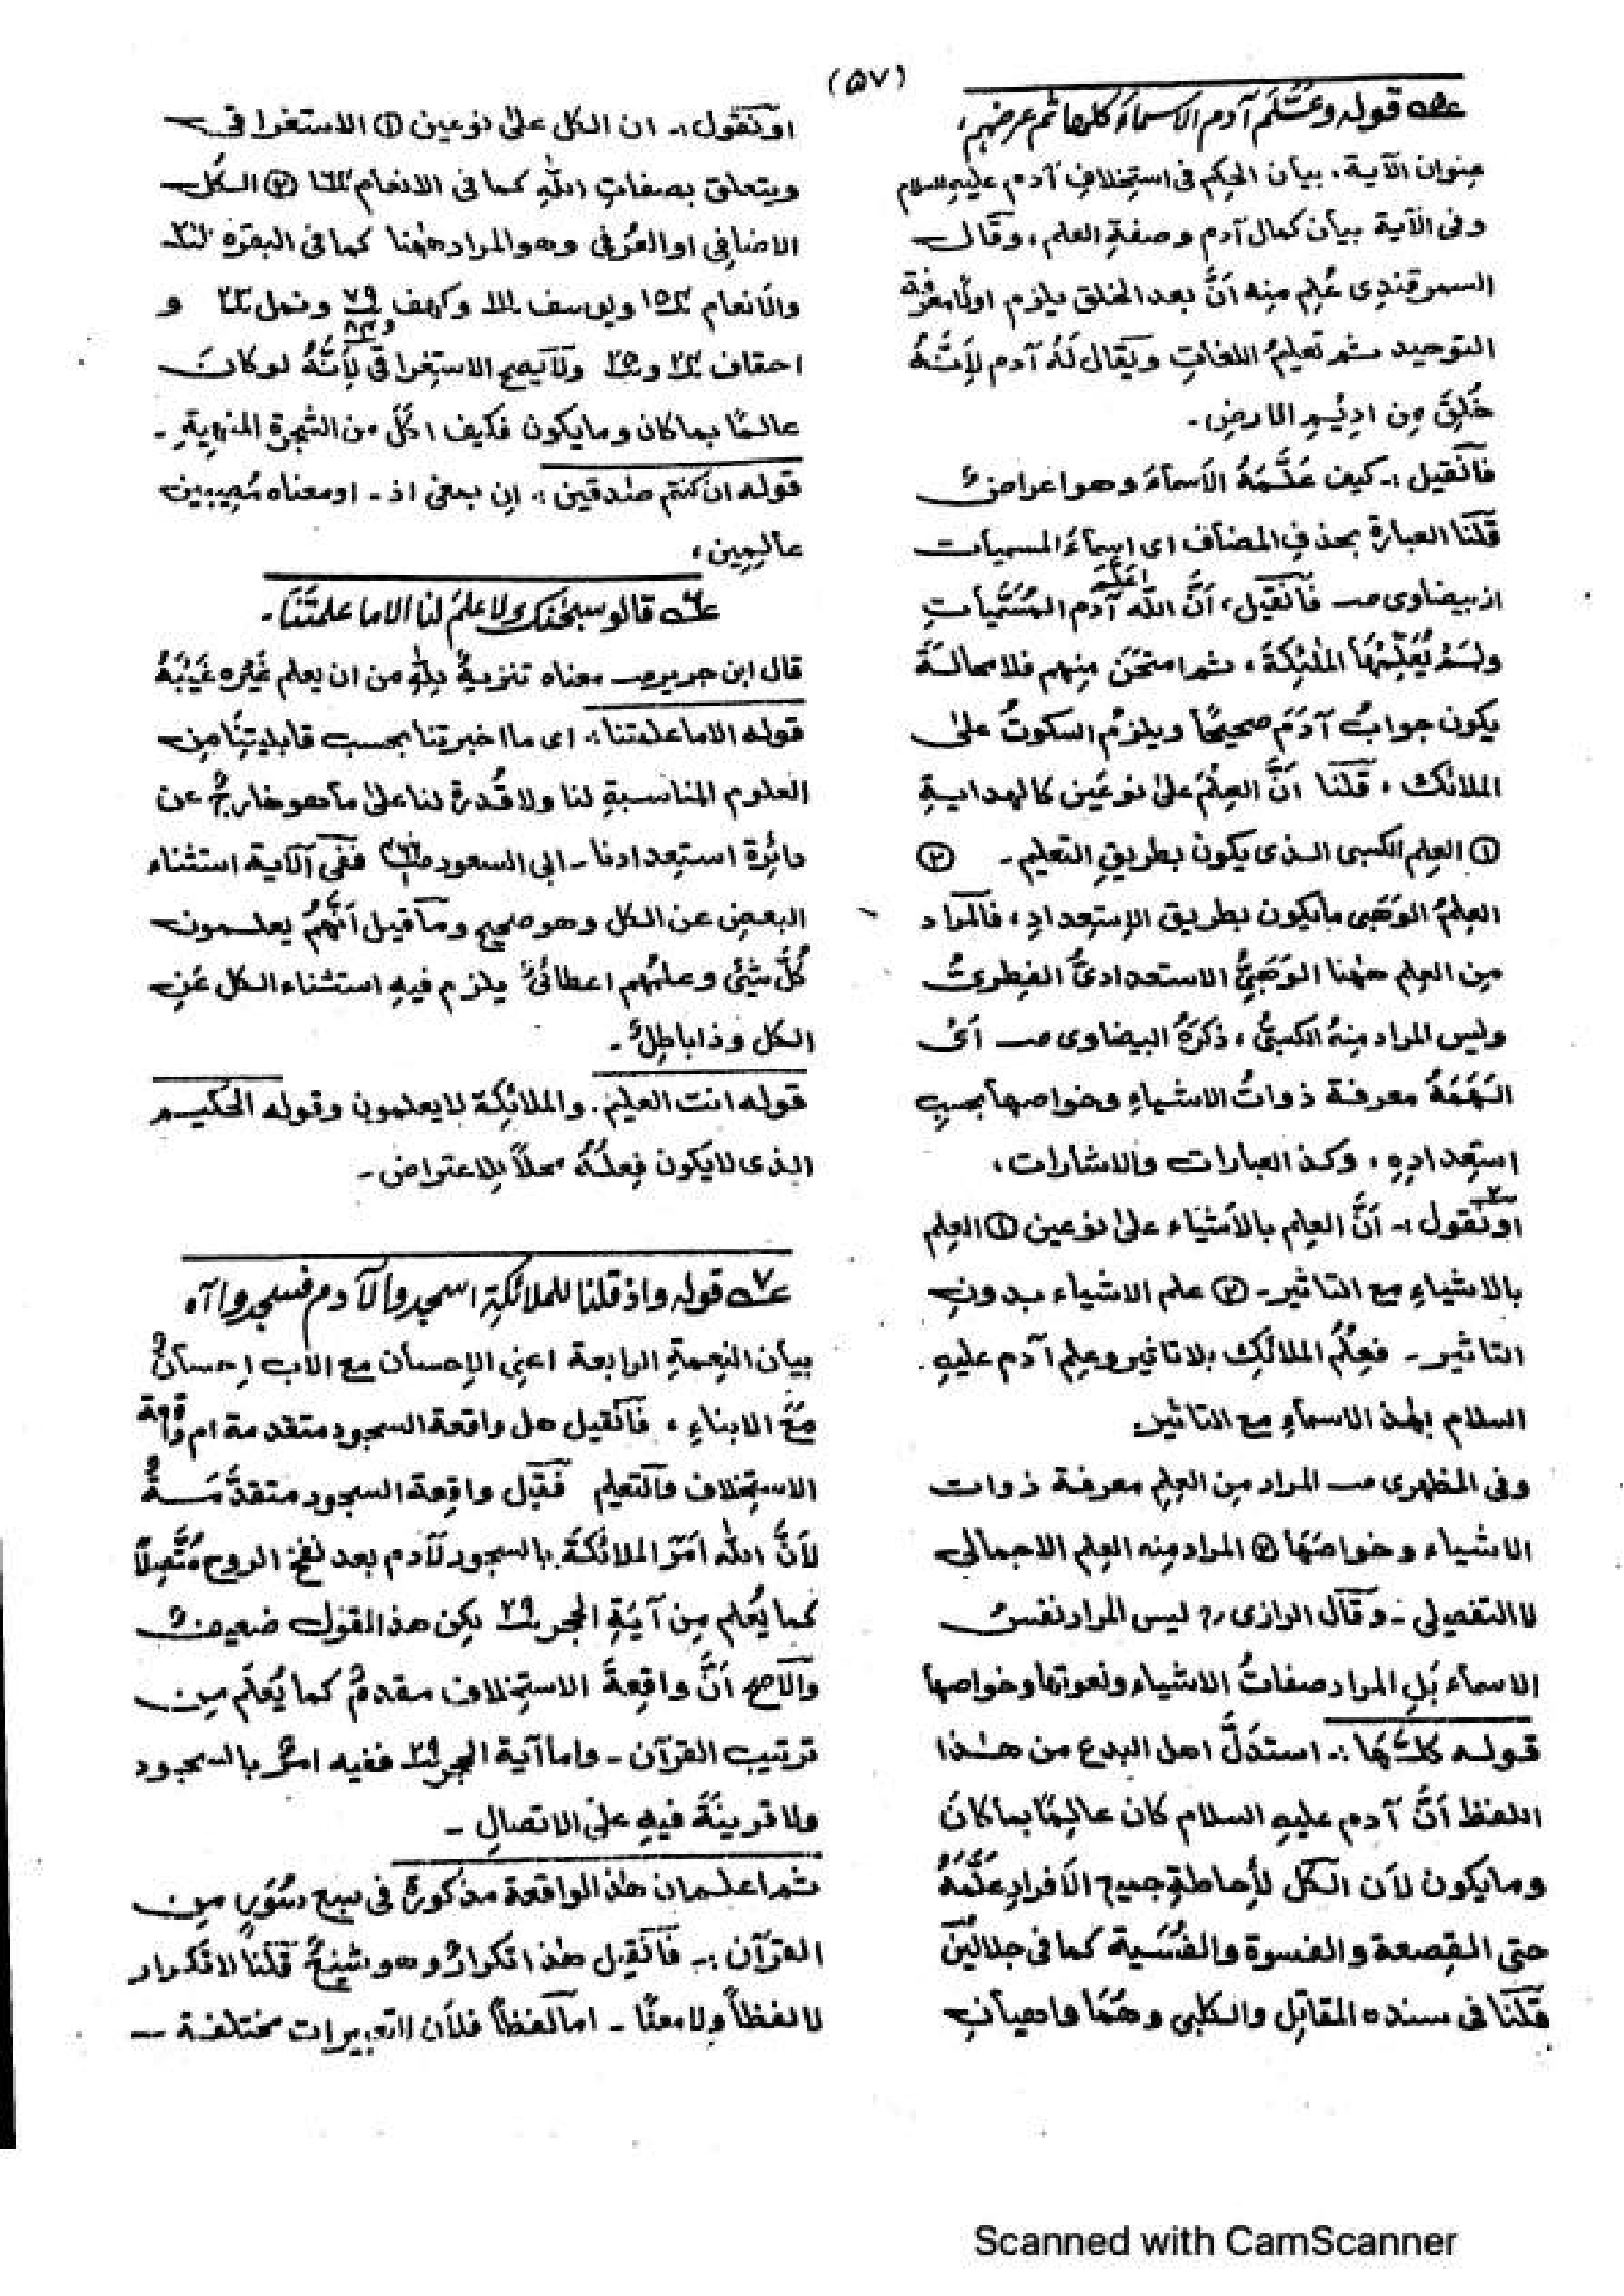 (۵۷)
قوله وعَلَّمَ آدم الاسماءَ كلها ثم عرضهم،
عنوان الآية. بيان الحكم فى استخلافِ آدم عليه السلام
وفى الآية بيان كمال آدم وصفةِ العلم، وقال
السمرقندى عُلِم مِنه اَنَّ بعد الخلق يلزم اولًا معرفة
التوحيد ثم تعليمُ اللغاتِ ويقال لَهُ آدم لِاَنَّهُ
خُلِقَ مِن ادِيْمِ الارضِ۔
فانقيل:۔ كيف عَلَّمَهُ الاَسماءَ وهو اعراضٌ
قلنا العبارة بحذفِ المضاف اى اسماءُ المسميات
از بيضاوى صـ فانقيل، اَنَّ الله اَعْلَمَ آدم المُسَمَّياتِ
ولَمْ يُعَلِّمْهَا الملٰئِكةَ، ثم امتحَنَ مِنهم فلا محالةَ
يكون جوابُ آدَمَ صحيحًا ويلزمُ السكوتُ علىٰ
الملائك، قلنا اَنَّ العِلْمَ علىٰ نوعَين كالهدايةِ
① العِلم الكسبى الذى يكون بطريقِ التعليم۔ ②
العِلمُ الوَهَبى مايكون بطريق الاِستِعدادِ، فالمراد
مِن العِلم هٰهنا الوَهَبِىُّ الاستعدادىُّ الفِطرىُّ
وليس المراد مِنهُ الكسبىُّ، ذكَرَهُ البيضاوى صـ اَىْ
اَلْهَمَهُ معرفة ذواتُ الاشياءِ وخواصها بحسبِ
استِعدادِهِ، وكذ العبارات والاشارات،
او نقول:۔ اَنَّ العِلم بالاَشيَاء علىٰ نوعين ① العِلم
بالاشياءِ مع التاثير۔ ② علم الاشياء بدونِ
التاثير۔ فعِلْمُ الملائِك بلا تاثير وعلم آدم عليهِ
السلام بهٰذ الاسماءِ مع التاثير۔
وفى المظهرى صـ المراد مِن العِلمِ معرفة ذوات
الاشياء وخواصّهَا ② المراد مِنه العِلم الاجمالى
لا التفصيلى۔ وقال الرازى رح ليس المراد نفسُ
الاسماء بَلِ المراد صفاتُ الاشياءِ ونعوتها وخواصها
قوله كلَّهَا:۔ استدَلَّ اهل البدع من هٰذا
اللفظ اَنَّ آدم عليهِ السلام كان عالِمًا بما كانَ
ومايكون لاَن الكل لِأحاطةِ جميعِ الاَفرادِ عَلَّمَهُ
حتى القِصعة والفسوة والفُسَية كما فى جلالين
قلنا فى سنده المقاتِل والكلبى وهُمَا واهيانِ
او نقول:۔ ان الكل علىٰ نوعين ① الاستغراقى
ويتعلق بصفاتِ اللهِ كما فى الانعام ② الكل
الاضافِى او العُرفى وهو المراد هٰهنا كما فى البقره
والانعام ويوسف وكهف ونمل و
احقاف و ولايصح الاستِغراقى لِأنَّهُ لوكانَ
عالمًا بما كان ومايكون فكيف اكَلَ من الشجرة المنهيةِ۔
قوله ان كنتم صٰدقين:۔ اِن بمعنى اذ۔ او معناه مُصِيبين
عالِمِين،
قالو سبحٰنك ولاعلمُ لنا الا ما علمتَنَا۔
قال ابن جرير صـ معناه تنزيهٌ لِلّٰهِ من ان يعلم غَيْرُه غَيْبَهُ
قوله الا ما علمتنا:۔ اى ما اخبرتنا بحسب قابليتِنَا مِن
العلوم المناسبةِ لنا ولا قُدرة لنا علىٰ ما هو خارجٌ عن
دائرة استِعدادنا۔ ابى السعود ففى الآية استثناء
البعضِ عن الكل وهو صحيح وماقيل اَنَّهُمْ يعلمون
كُلَّ شيئٍ وعلمُهم اعطائىٌّ يلزم فيهِ استثناء الكل عَنِ
الكل وذا باطِلٌ۔
قوله انت العليم. والملائِكة لايعلمون وقوله الحكيم
الذى لايكون فِعلُهُ محلًّا لِلاعتراض۔
قوله واذ قلنا للملائكةِ اسجدوا لآدم فسجدوا آه
بيان النِعمةِ الرابعة اعنِى الاِحسان مع الاب اِحسانٌ
مَعَ الابناءِ، فانقيل هل واقعة السجود متقدمة ام واقعة
الاستِخلاف والتعليم فقيل واقِعة السجود متقدَّمَةٌ
لاَنَّ الله اَمَرَ الملائكةَ بالسجود لآدم بعد نفخِ الروح مُتَّصِلًا
كما يُعلم مِن آيَةِ الحجر لكِن هذ القول ضعيفٌ
والاصح اَنَّ واقِعةَ الاستِخلاف مقدمٌ كما يُعلَم مِن
ترتيب القرآن۔ واما آية الحجر ففيه امرٌ بالسجود
ولا قرينَةَ فيهِ علىٰ الاتصالِ۔
ثم اعلم ان هٰذ الواقعة مذكورة فى سبع سُوَرٍ مِن
القرآن:۔ فانقيل هٰذ تكرارٌ وهو شنيعٌ قلنا لا تكرار
لا لفظاً ولا معنًا۔ اما لفظاً فلاَن التعبيرات مختلفة۔
Scanned with CamScanner